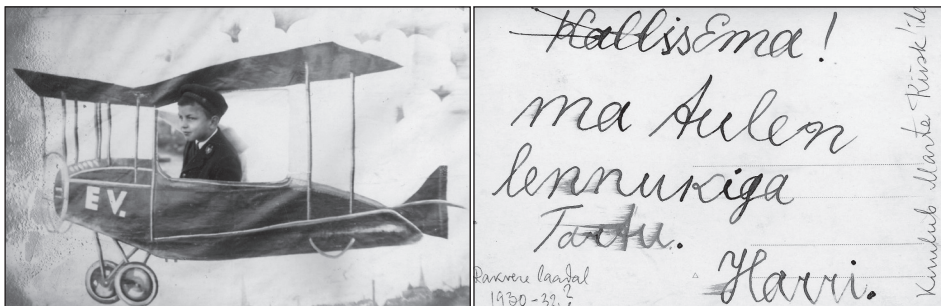 E V.
Kallis Ema!
ma tulen
lennukiga
Tartu.
Harri.
Rakvere laadal
1930-32?
Kuulub Marta Kiisk'ile